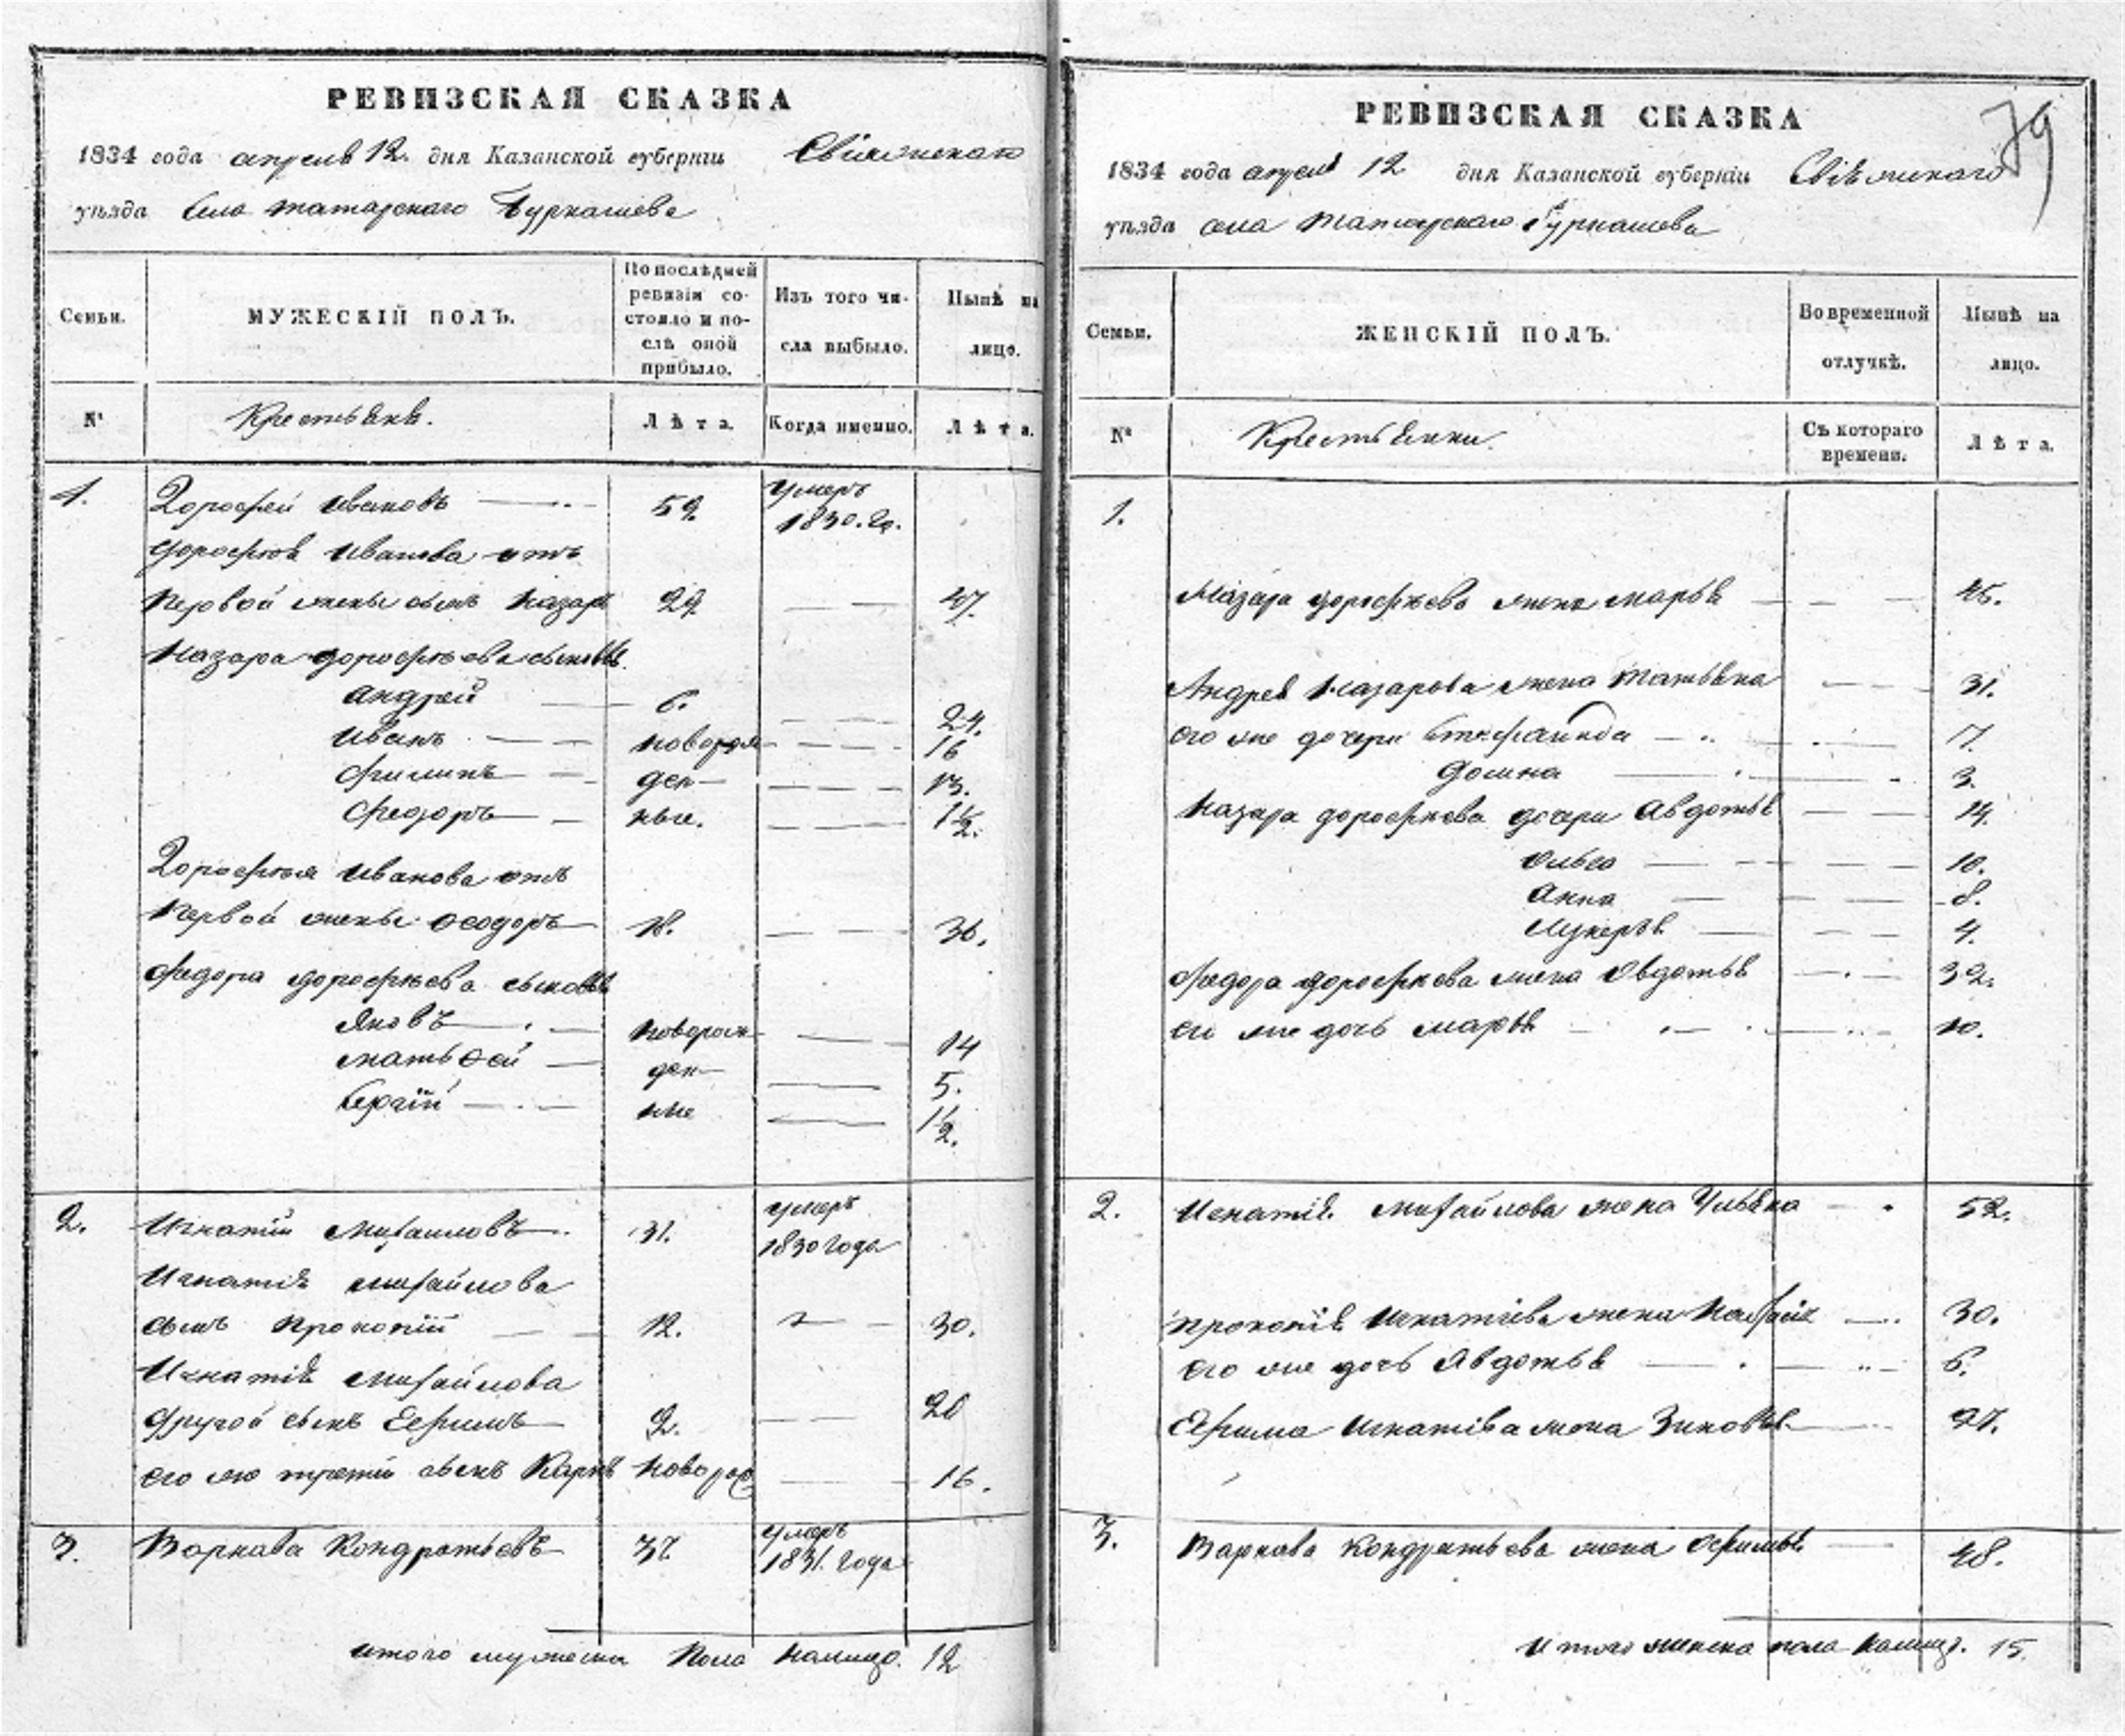 РЕВИЗСКАЯ СКАЗКА
1834 года апреля 12. дня Казанской губернiи Свiяжскаго
уѣзда села татарскаго Бурнашева
Семьи.
МУЖЕСКIЙ ПОЛЪ.
По послѣдней ревизiи состояло и послѣ оной прибыло.
Изъ того числа выбыло.
Нынѣ на лицо.
№
Крестьяне.
Лѣта.
Когда именно.
Лѣта.
1. Дорофей Ивановъ 59. умеръ 1830. го.
Дорофея Иванова отъ
первой жены сынъ Назаръ 29. 47.
Назара дорофѣева сыновья
андрей 6. 24.
Иванъ новорож 16
филипъ ден 13.
феодоръ ные. 1½.
Дорофея Иванова отъ
первой жены Ѳеодоръ 18. 36.
федора дорофѣева сыновья
Яковъ новорож 14
матьѲей ден 5.
Сергiй ные 1½.
2. Игнатiй михаиловъ 31. умеръ 1830 года
Игнатiя михайлова
сынъ прокопiй 12. 30.
Игнатiя михайлова
другой сынъ Ефимъ 2. 20
его же третiй сынъ Карпъ новорож 16.
3. Варнава Кондратьевъ 37. умеръ 1831. года
итого мужеска пола налицо. 12
79
РЕВИЗСКАЯ СКАЗКА
1834 года апреля 12 дня Казанской губернiи Свiяжскаго
уѣзда села Татарскаго Бурнашева
Семьи.
ЖЕНСКIЙ ПОЛЪ.
Во временной отлучкѣ.
Нынѣ на лицо.
№
Крестьянки.
Съ котораго времени.
Лѣта.
1.
Назара дорофѣева жена марья 45.
Андрея Назарова жена татьяна 31.
его же дочери 7.
домна 3.
Назара дорофѣева дочери Авдотья 14.
Ольга 10.
Анна 8.
Лукерья 4.
федора дорофѣева жена Овдотья 32.
его же дочь марья 10.
2. Игнатiя михайлова жена Ульяна 52.
прокопiя Игнатiева жена 30.
его же дочь Авдотья 6.
Ефима Игнатiва жена Зиновья 27.
3. Варнава Кондратьева жена 48.
итого женска пола налицо. 15.